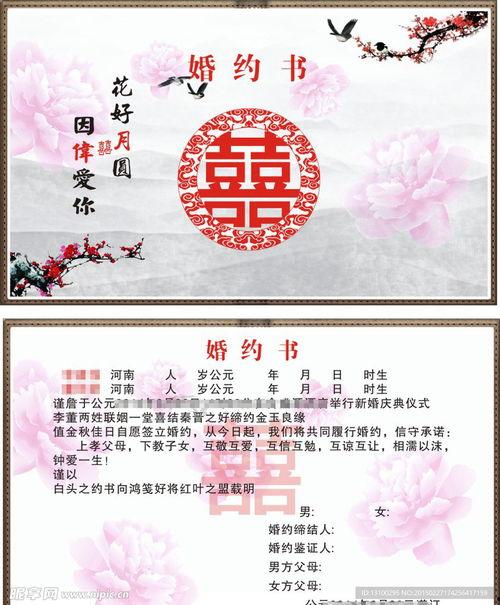 婚约书
花好月圆
囍
因偉愛你
囍
婚约书
河南 人 岁公元 年 月 日 时生
河南 人 岁公元 年 月 日 时生
谨詹于公元 举行新婚庆典仪式
李董两姓联姻一堂喜结秦晋之好缔约金玉良缘
值金秋佳日自愿签立婚约，从今日起，我们将共同履行婚约，信守承诺：
上孝父母，下教子女，互敬互爱，互信互勉，互谅互让，相濡以沫，
钟爱一生！
谨以
白头之约书向鸿笺好将红叶之盟载明
囍
男： 女：
婚约缔结人：
婚约鉴证人：
男方父母：
女方父母：
昵享网 www.nipic.cn
ID:13100295 NO:20150227174256417159